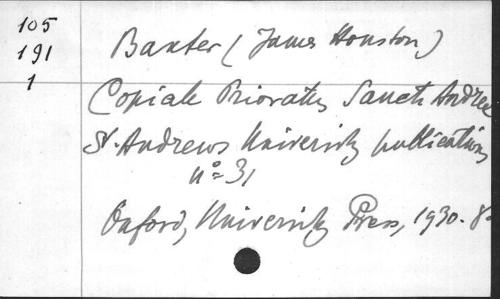 105
191
1
Baxter (James Houston)
Copiale Prioratus Sancti Andree
St. Andrews University publications
nº 31
Oxford, University Press, 1930. 8º